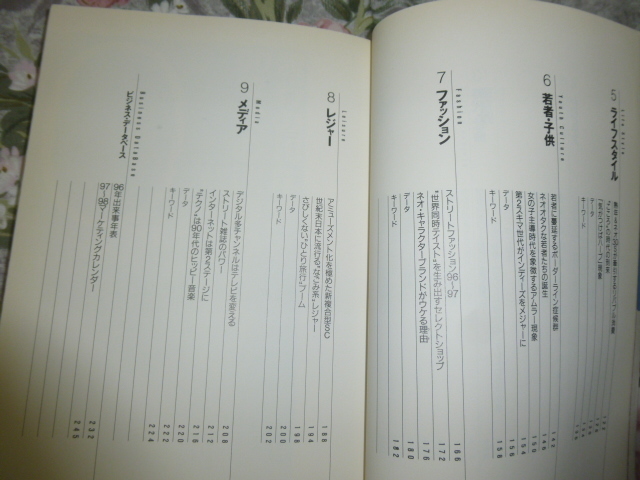 5 ライフスタイル
データ
キーワード
6 若者・子供
Youth Culture
若者に蔓延するボーダーライン症候群 142
ネオオタクな若者たちの誕生 146
女の子主導時代を象徴するアムラー現象
第2スキマ世代がインディーズをメジャーに 154
データ 156
キーワード 156
7 ファッション
Fashion
ストリートファッション96〜97 166
“世界同時テイスト”を生み出すセレクトショップ 172
ネオ・キャラクターブランドがウケる理由 176
データ 180
キーワード 182
8 レジャー
Leisure
アミューズメント化を極めた新複合型SC 188
世紀末日本に流行る“なごみ系”レジャー 194
さびしくない“ひとり旅行”ブーム 198
データ 200
キーワード 202
9 メディア
Media
デジタル多チャンネルはテレビを変える 208
ストリート雑誌のパワー 212
インターネットは第2ステージに 216
“テクノ”は90年代のヒッピー音楽 220
データ 222
キーワード 224
ビジネス・データベース
Business Database
96年出来事年表 232
97〜98マーケティングカレンダー 245